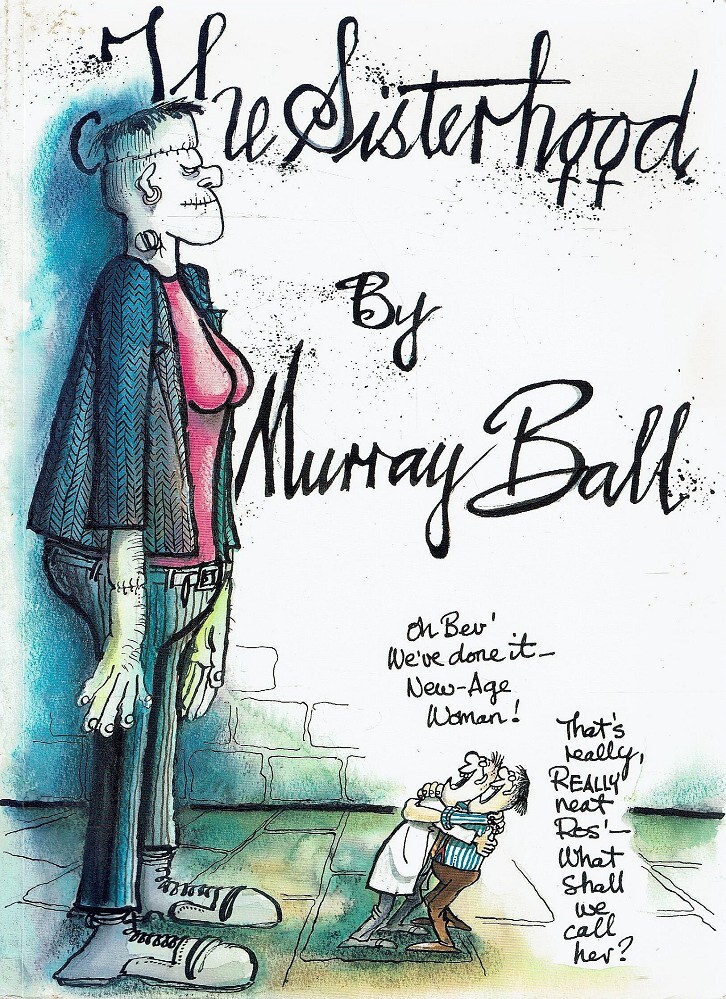 The Sisterhood
By
Murray Ball
Oh Bev'
We've done it—
New-Age
Woman!
That's
really,
REALLY
neat
Ros'—
What
shall
we
call
her?